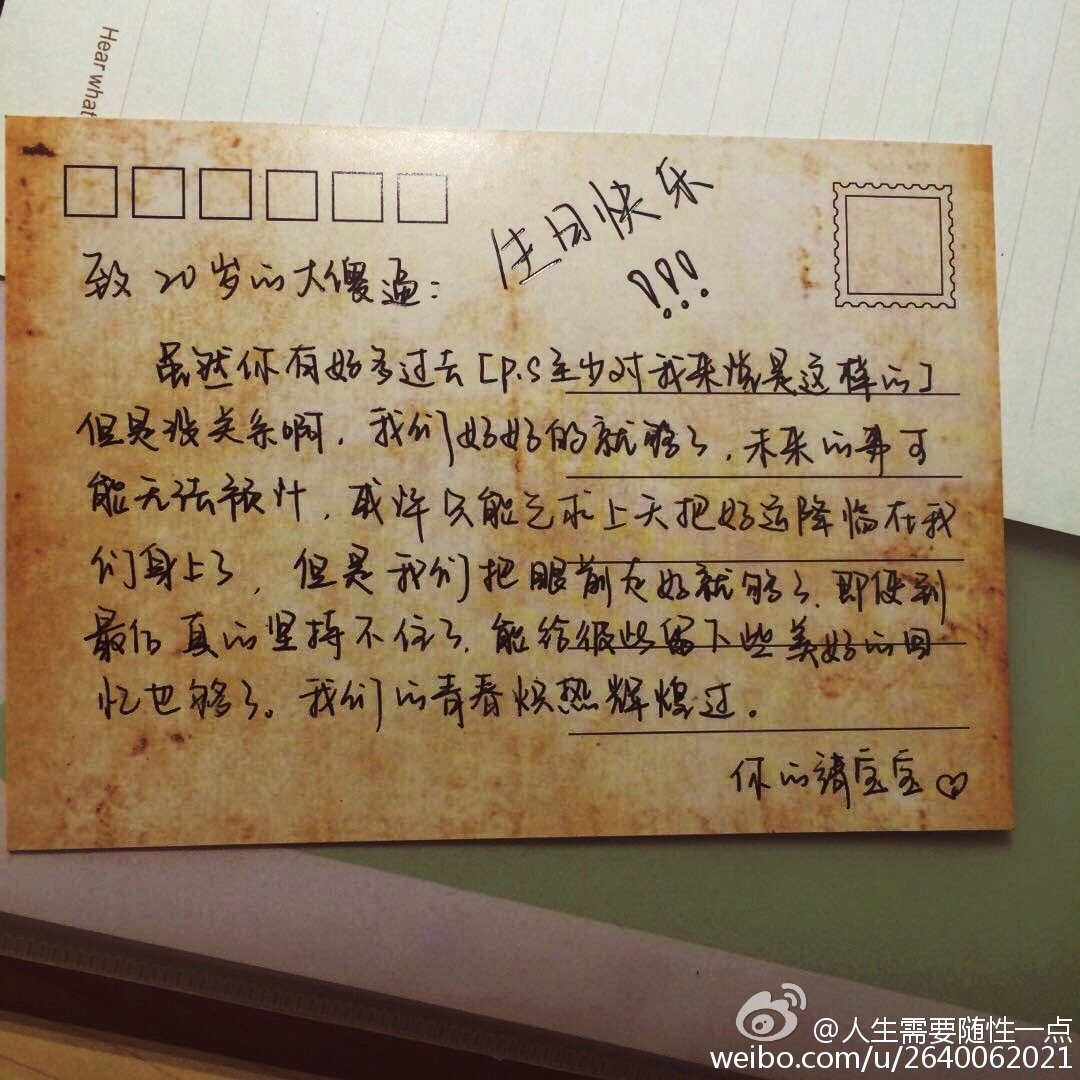 Hear what
生日快乐
!!!
致 20岁的大傻逼:
虽然你有好多过去[P.S至少对我来说是这样的]
但是没关系啊,我们好好的就够了,未来的事可
能无法预计,或许只能乞求上天把好运降临在我
们身上了,但是我们把眼前过好就够了,即便到
最后真的坚持不住了,能给彼此留下些美好的回
忆也够了。我们的青春炽热辉煌过。
你的诸宝宝
@人生需要随性一点
weibo.com/u/2640062021